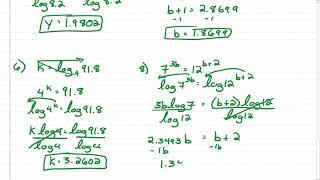 log8.2 log8.2
y = 1.9802
b+1 = 2.8699
-1 -1
b = 1.8699
6) K = log₄ 91.8
4ᴷ = 91.8
log4ᴷ = log91.8
Klog4 = log91.8
log4 log4
K = 3.2602
8) 7³ᵇ = 12ᵇ⁺²
log7³ᵇ = log12ᵇ⁺²
3blog7 = (b+2)log12
log12 log12
2.3493b = b+2
-1b -1b
1.3